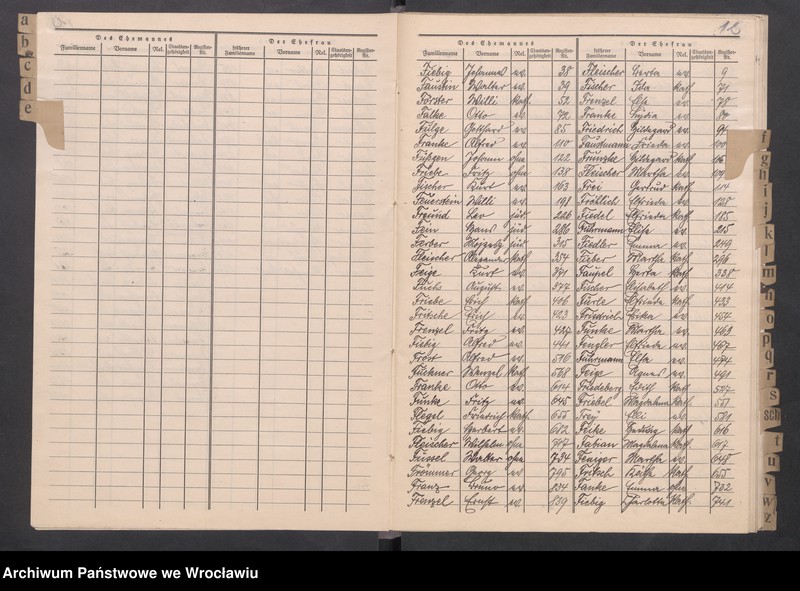 a
b
c
d
e
Des Ehemannes Der Ehefrau
Familienname Vorname Rel. Staatsangehörigkeit Register-Nr. früherer Familienname Vorname Rel. Staatsangehörigkeit Register-Nr.
12
Des Ehemannes Der Ehefrau
Familienname Vorname Rel. Staatsangehörigkeit Register-Nr. früherer Familienname Vorname Rel. Staatsangehörigkeit Register-Nr.
Fiebig Johannes ev. 38 Fleischer Herta ev. 9
Faustin Walter ev. 39 Fischer Ida kath. 71
Förster Willi kath. 52 Frenzel Else ev. 78
Falke Otto ev. 72 Franke Lydia ev.
Fülge Gotthard ev. 85 Friedrich Hildegard ev.
Franke Alfred ev. 110 Faustmann Frieda ev. 100
Füßgen Johann ohne 122 Hildegard kath.
Friebe Fritz ohne 138 Fleischer Martha ev. 109
Fischer Kurt ev. 163 Frei Gertrud kath. 114
Feuerstein Willi ev. 198 Fröhlich Elfriede ev. 128
Freund Leo jüd. 226 Fiedel Elfrieda kath. 185
Fein Hans jüd. 286 Fuhrmann Elise ev. 215
Ferber jüd. 315 Fiedler Emma ev. 249
Fleischer Alexander kath. 354 Fieber Martha kath. 296
Feige Kurt ev. 371 Herta kath. 338
Fuchs August ev. 377 Fischer Elisabeth ev. 414
Friebe Erich kath. 406 Fürle Elfrieda kath. 433
Fritsche Erich ev. 423 Friedrich Erika ev. 454
Frenzel Fritz ev. 427 Funke Martha ev. 463
Fiebig Alfred ev. 441 Fengler Elfrieda ev. 467
Frost Alfred ev. 516 Fuhrmann Elsa ev. 474
Wenzel kath. 568 Feige Agnes ev. 491
Franke Otto ev. 614 Friedeberg Edith kath. 507
Funke Fritz ev. 645 Friebel Magdalena kath. 551
Flegel Friedrich kath. 655 Frey Elli ev. 581
Fiebig Herbert ev. 682 Hedwig kath. 616
Fleischer Wilhelm ohne 707 Fabian Magdalena kath. 617
Fussel Walter ohne 734 Feniger Martha ev. 648
Frömmer Georg ev. 795 Fritsch Käthe kath. 655
Franz Bruno ev. 834 Fanke Emma ohne 702
Frenzel Ernst ev. 839 Fiebig Charlotte kath. 741
f
g
h
i
j
k
l
m
n
o
p
q
r
s
sch
t
u
v
w
z
Archiwum Państwowe we Wrocławiu